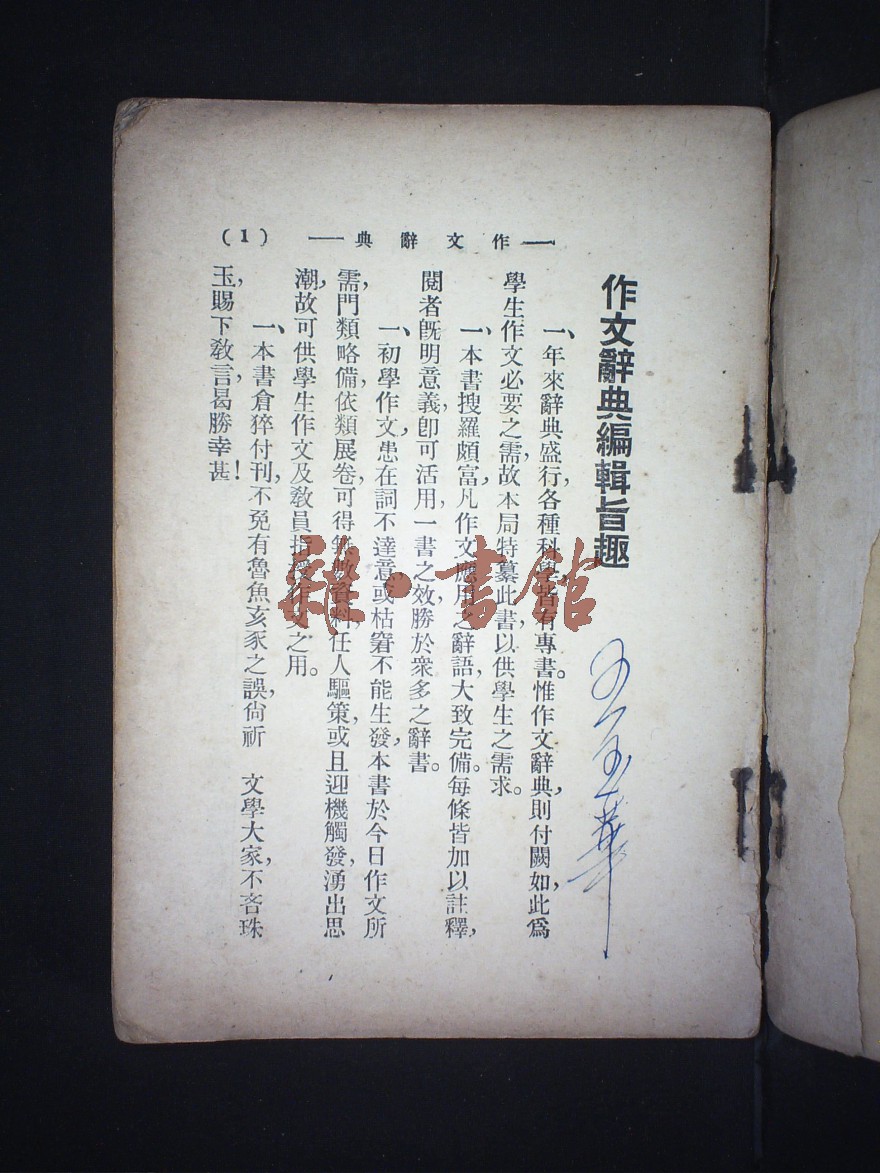 作文辭典編輯旨趣
一、年來辭典盛行,各種科學,皆有專書。惟作文辭典,則付闕如,此爲
學生作文必要之需,故本局特纂此書,以供學生之需求。
一、本書搜羅頗富,凡作文應用之辭語,大致完備。每條皆加以註釋,
閱者旣明意義,卽可活用,一書之效,勝於衆多之辭書。
一、初學作文,患在詞不達意,或枯窘不能生發,本書於今日作文所
需,門類略備,依類展卷,可得無數資料,任人驅策,或且迎機觸發,湧出思
潮,故可供學生作文及敎員指授作文之用。
一、本書倉猝付刊,不免有魯魚亥豕之誤,尙祈 文學大家,不吝珠
玉,賜下敎言,曷勝幸甚!
作文辭典
(1)
雜·書館